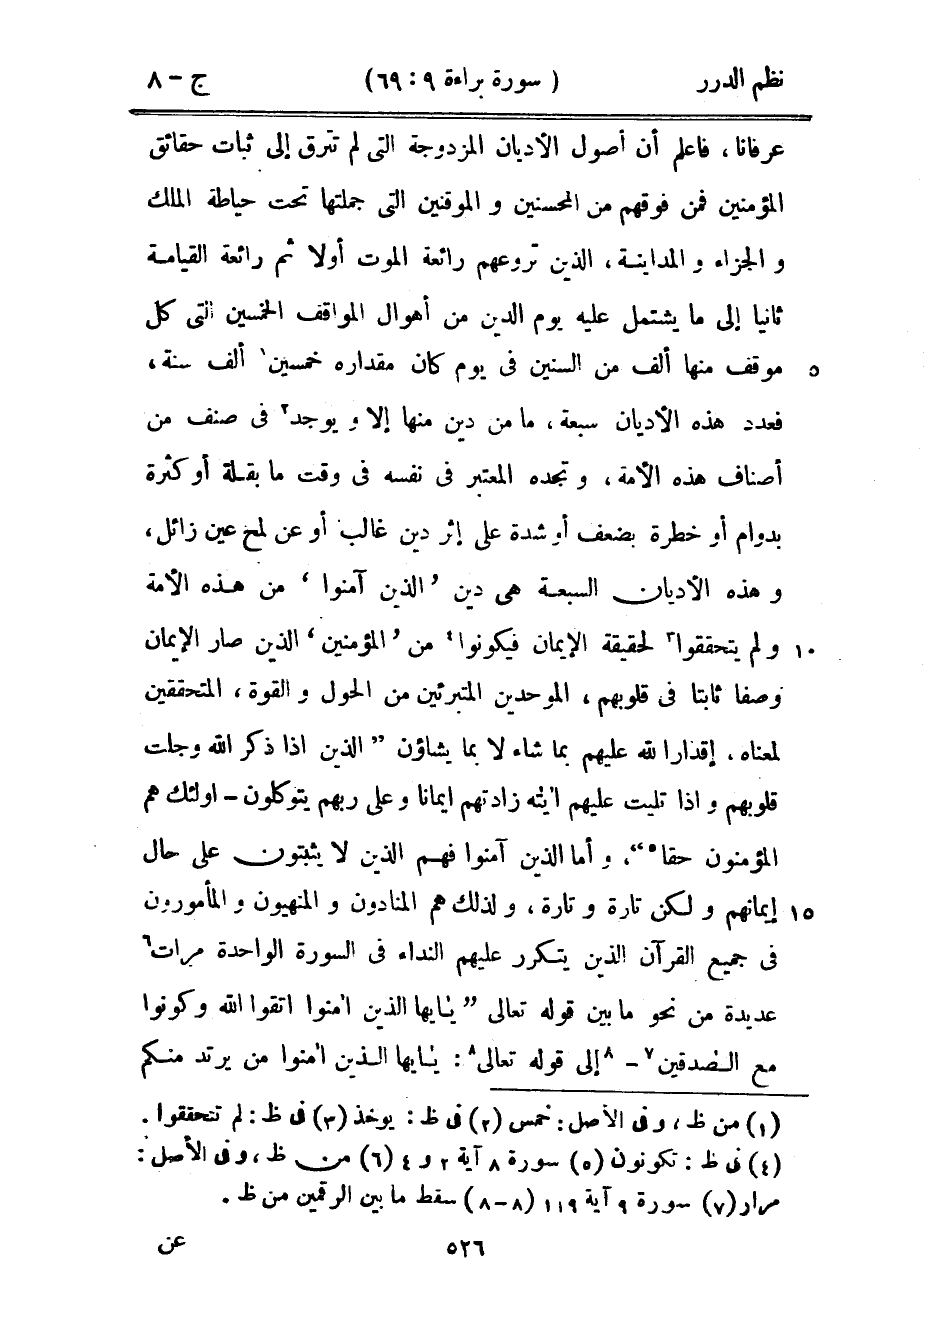 نظم الدرر ( سورة براءة ٩ : ٦٩) ج - ٨
عرفانا ، فاعلم أن أصول الأديان المزدوجة التى لم تترق إلى ثبات حقائق
المؤمنين فمن فوقهم من المحسنين و الموقنين التى جملتها تحت حياطة الملك
و الجزاء و المداينة ، الذين تروعهم رائعة الموت أولا ثم رائعة القيامة
ثانيا إلى ما يشتمل عليه يوم الدين من أهوال المواقف الخمسين التى كل
٥ موقف منها ألف من السنين فى يوم كان مقداره خمسين١ ألف سنة ،
فعدد هذه الأديان سبعة ، ما من دين منها إلا و يوجد٢ فى صنف من
أصناف هذه الأمة ، و تجده المعتبر فى نفسه فى وقت ما بقلة أو كثرة
بدوام أو خطرة بضعف أو شدة على إثر دين غالب أو عن لمح عين زائل ،
و هذه الأديان السبعة هى دين ’الذين آمنوا ‘ من هذه الأمة
١٠ و لم يتحققوا٣ لحقيقة الإيمان فيكونوا٤ من ’المؤمنين‘ الذين صار الإيمان
وصفا ثابتا فى قلوبهم ، الموحدين المتبرئين من الحول و القوة ، المتحققين
لمعناه ، إقدارا لله عليهم بما شاء لا بما يشاؤن ” الذين اذا ذكر الله وجلت
قلوبهم و اذا تليت عليهم اٰيٰته زادتهم ايمانا و على ربهم يتوكلون – اولئك هم
المؤمنون حقا٥“، و أما الذين آمنوا فهم الذين لا يثبتون على حال
١٥ إيمانهم و لكن تارة و تارة ، و لذلك هم المنادون و المنهيون و المأمورون
فى جميع القرآن الذين يتكرر عليهم النداء فى السورة الواحدة مرات٦
عديدة من نحو ما بين قوله تعالى ” يٰايها الذين اٰمنوا اتقوا الله و كونوا
مع الصٰدقين٧ – ٨إلى قوله تعالى٨ : يٰايها الذين اٰمنوا من يرتد منكم
(١) من ظ ، و فى الأصل : خمس (٢) فى ظ : يوخذ (٣) فى ظ : لم تتحققوا .
(٤) فى ظ : تكونون (٥) سورة ٨ آية ٢ و ٤ (٦) من ظ ، و فى الأصل :
مرار (٧) سورة ٩ آية ١١٩ (٨-٨) سقط ما بين الرقمين من ظ .
٥٢٦ عن